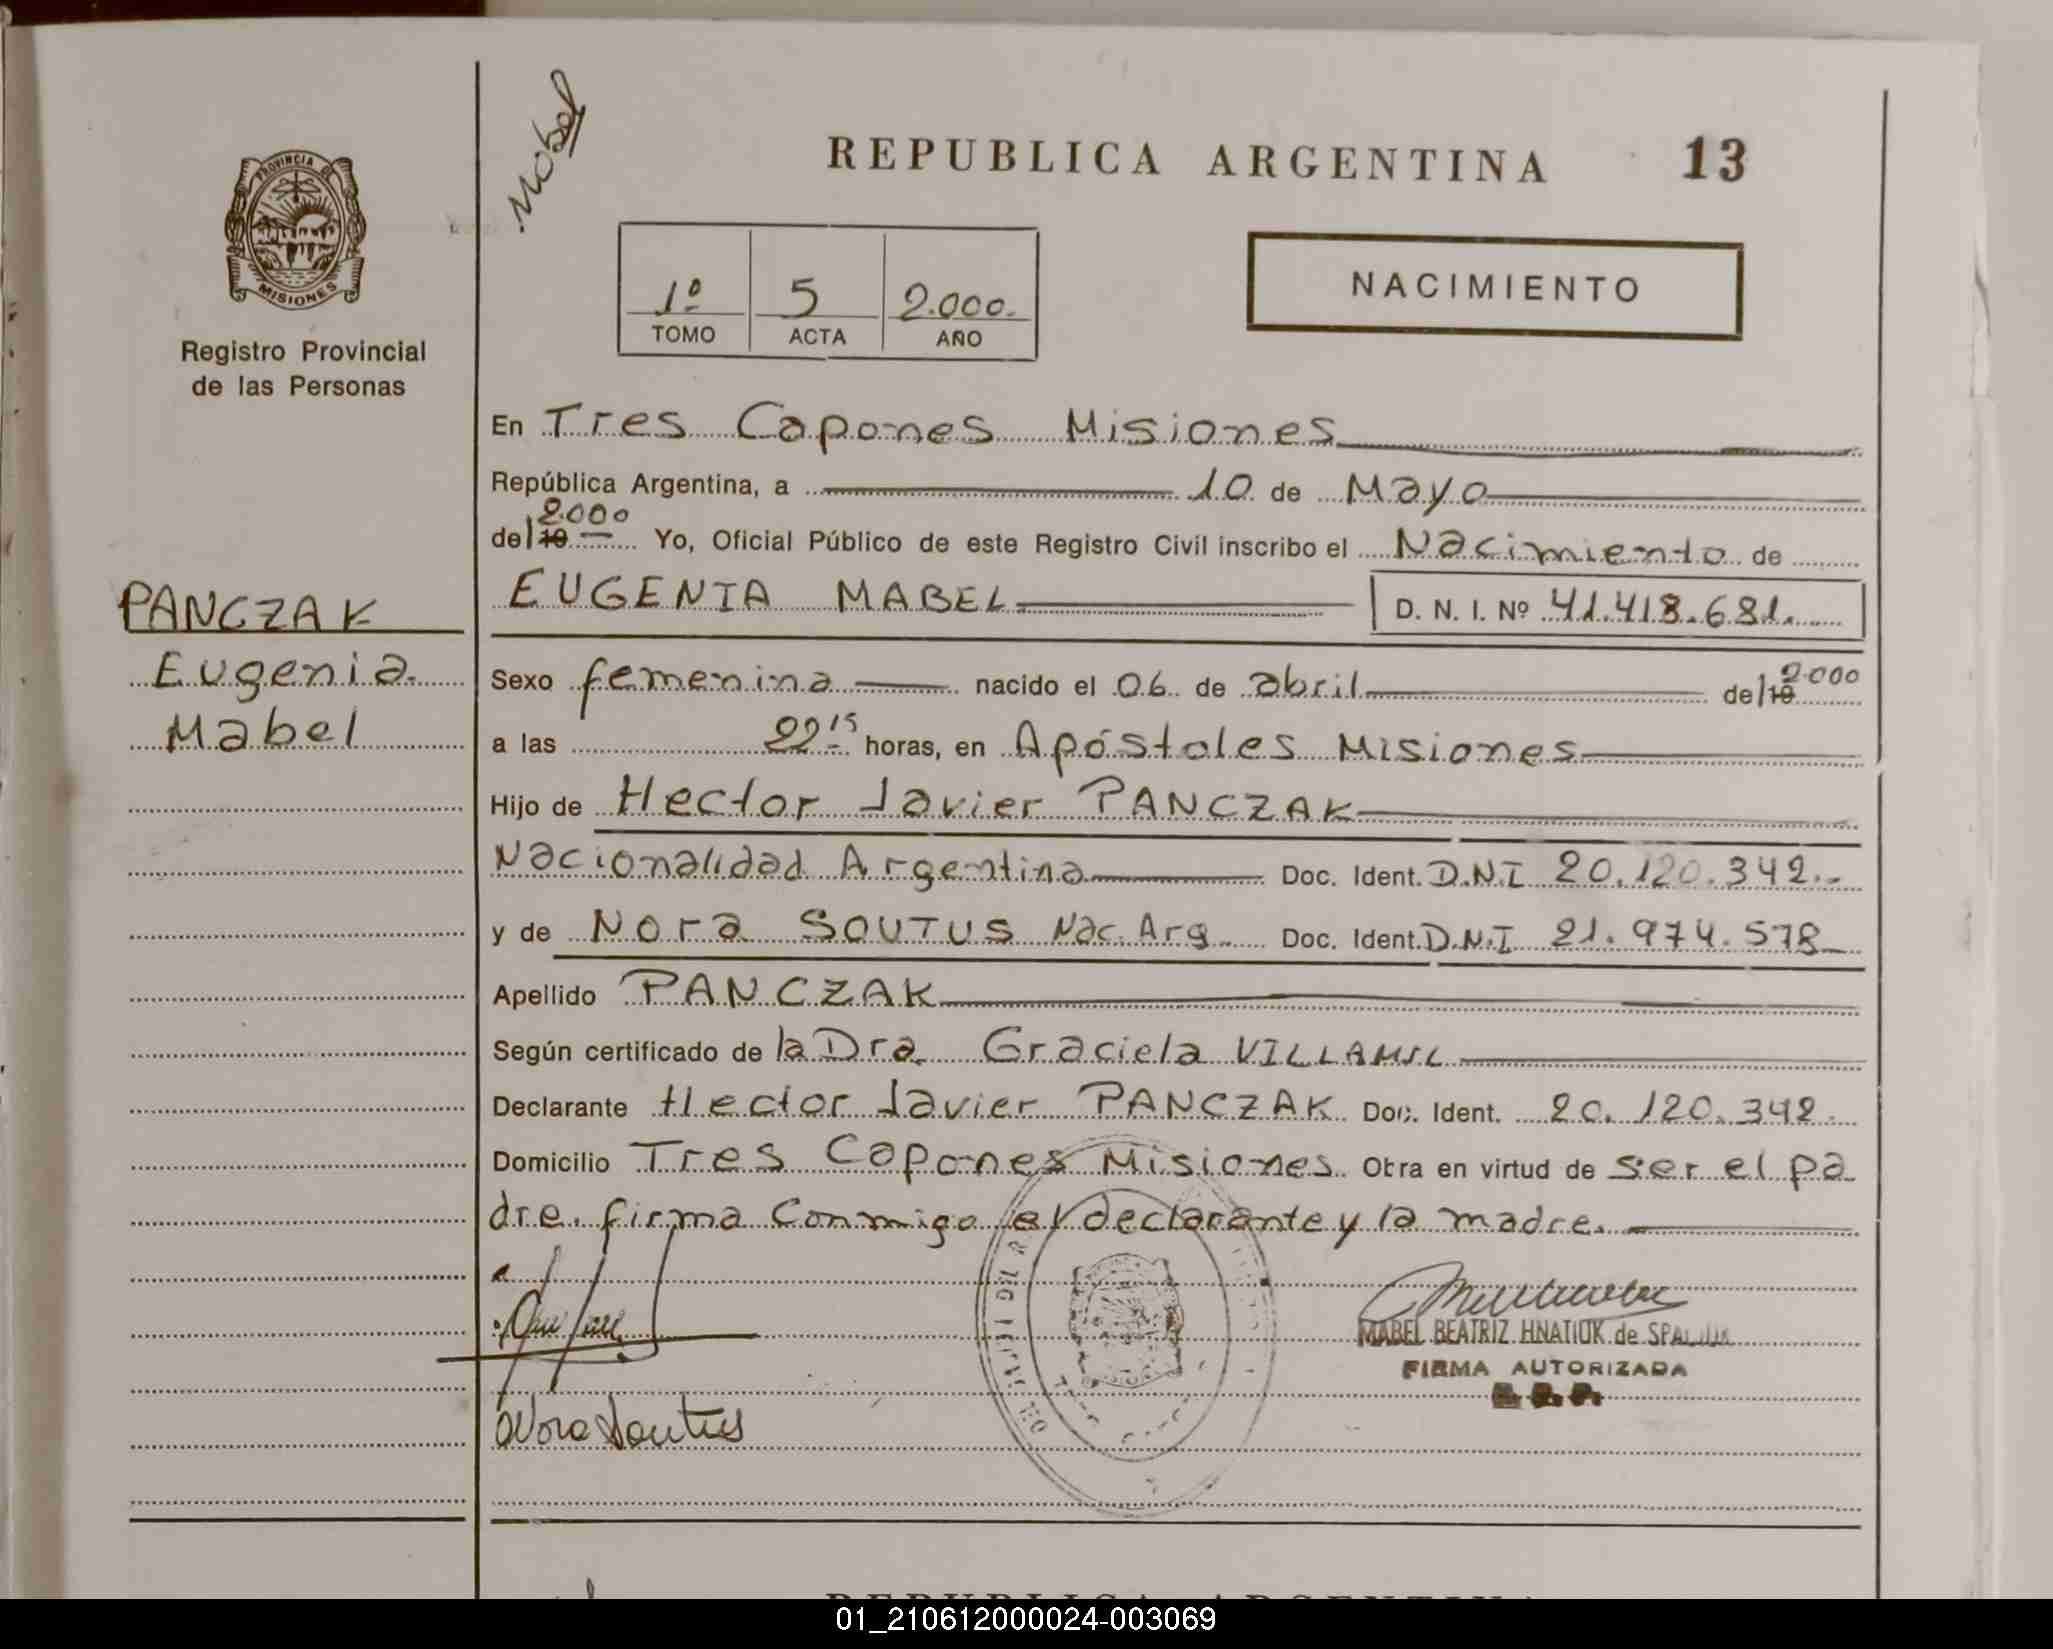 Mabel
REPUBLICA ARGENTINA 13
PROVINCIA
MISIONES
Registro Provincial
de las Personas
1º 5 2.000.
TOMO ACTA AÑO
NACIMIENTO
En Tres Capones Misiones
República Argentina, a 10 de Mayo
2000
del 19 Yo, Oficial Público de este Registro Civil inscribo el Nacimiento de
EUGENIA MABEL D. N. I. Nº 41.418.681.
PANCZAK
Eugenia
Mabel
Sexo femenina nacido el 06 de abril del 19 2.000
a las 22 15 horas, en Apóstoles Misiones
Hijo de Hector Javier PANCZAK
Nacionalidad Argentina Doc. Ident. D.N.I 20.120.342.-
y de Nora SOUTUS Nac. Arg. Doc. Ident. D.N.I 21.974.578
Apellido PANCZAK
Según certificado de la Dra. Graciela VILLAMIL
Declarante Hector Javier PANCZAK Doc. Ident. 20.120.342.
Domicilio Tres Capones Misiones. Obra en virtud de ser el pa
dre. firma Conmigo el declarante y la madre.
MABEL BEATRIZ HNATIUK de
FIRMA AUTORIZADA
Nora Soutus
REPUBLICA ARGENTINA
01_210612000024-003069